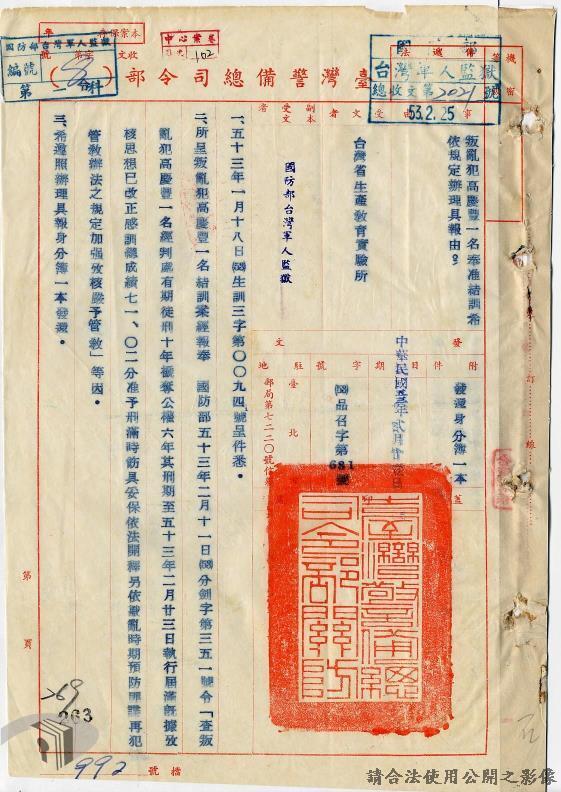 本案保存年
收文 字第 號
國防部台灣軍人監獄
編號
中心案卷
102
臺灣警備總司令部
台灣軍人監獄
總收文第2021號
53.2.25
事由
叛亂犯高慶豐一名奉准結訓希
依規定辦理具報由。
受文者
台灣省生產教育實驗所
副本
受文者
國防部台灣軍人監獄
附件
發還身分簿一本
發文
日期
中華民國
字號
品召字第681號
駐地
臺北
郵局第七二二〇號信箱
臺灣警備總司令部關防
一、五十三年一月十八日生訓三字第〇〇九四號呈件悉。
二、所呈叛亂犯高慶豐一名結訓案經報奉 國防部五十三年二月十一日分劍字第三五一號令「查叛
亂犯高慶豐一名經判處有期徒刑十年褫奪公權六年其刑期至五十三年二月廿三日執行屆滿旣據攷
核思想已改正感訓總成績七一、〇二分准予刑滿時飭具妥保依法開釋另依戡亂時期預防匪諜再犯
管教辦法之規定加强攷核嚴予管教」等因。
三、希遵照辦理具報身分簿一本發還。
訂
線
第 頁
263
檔號
992
請合法使用公開之影像